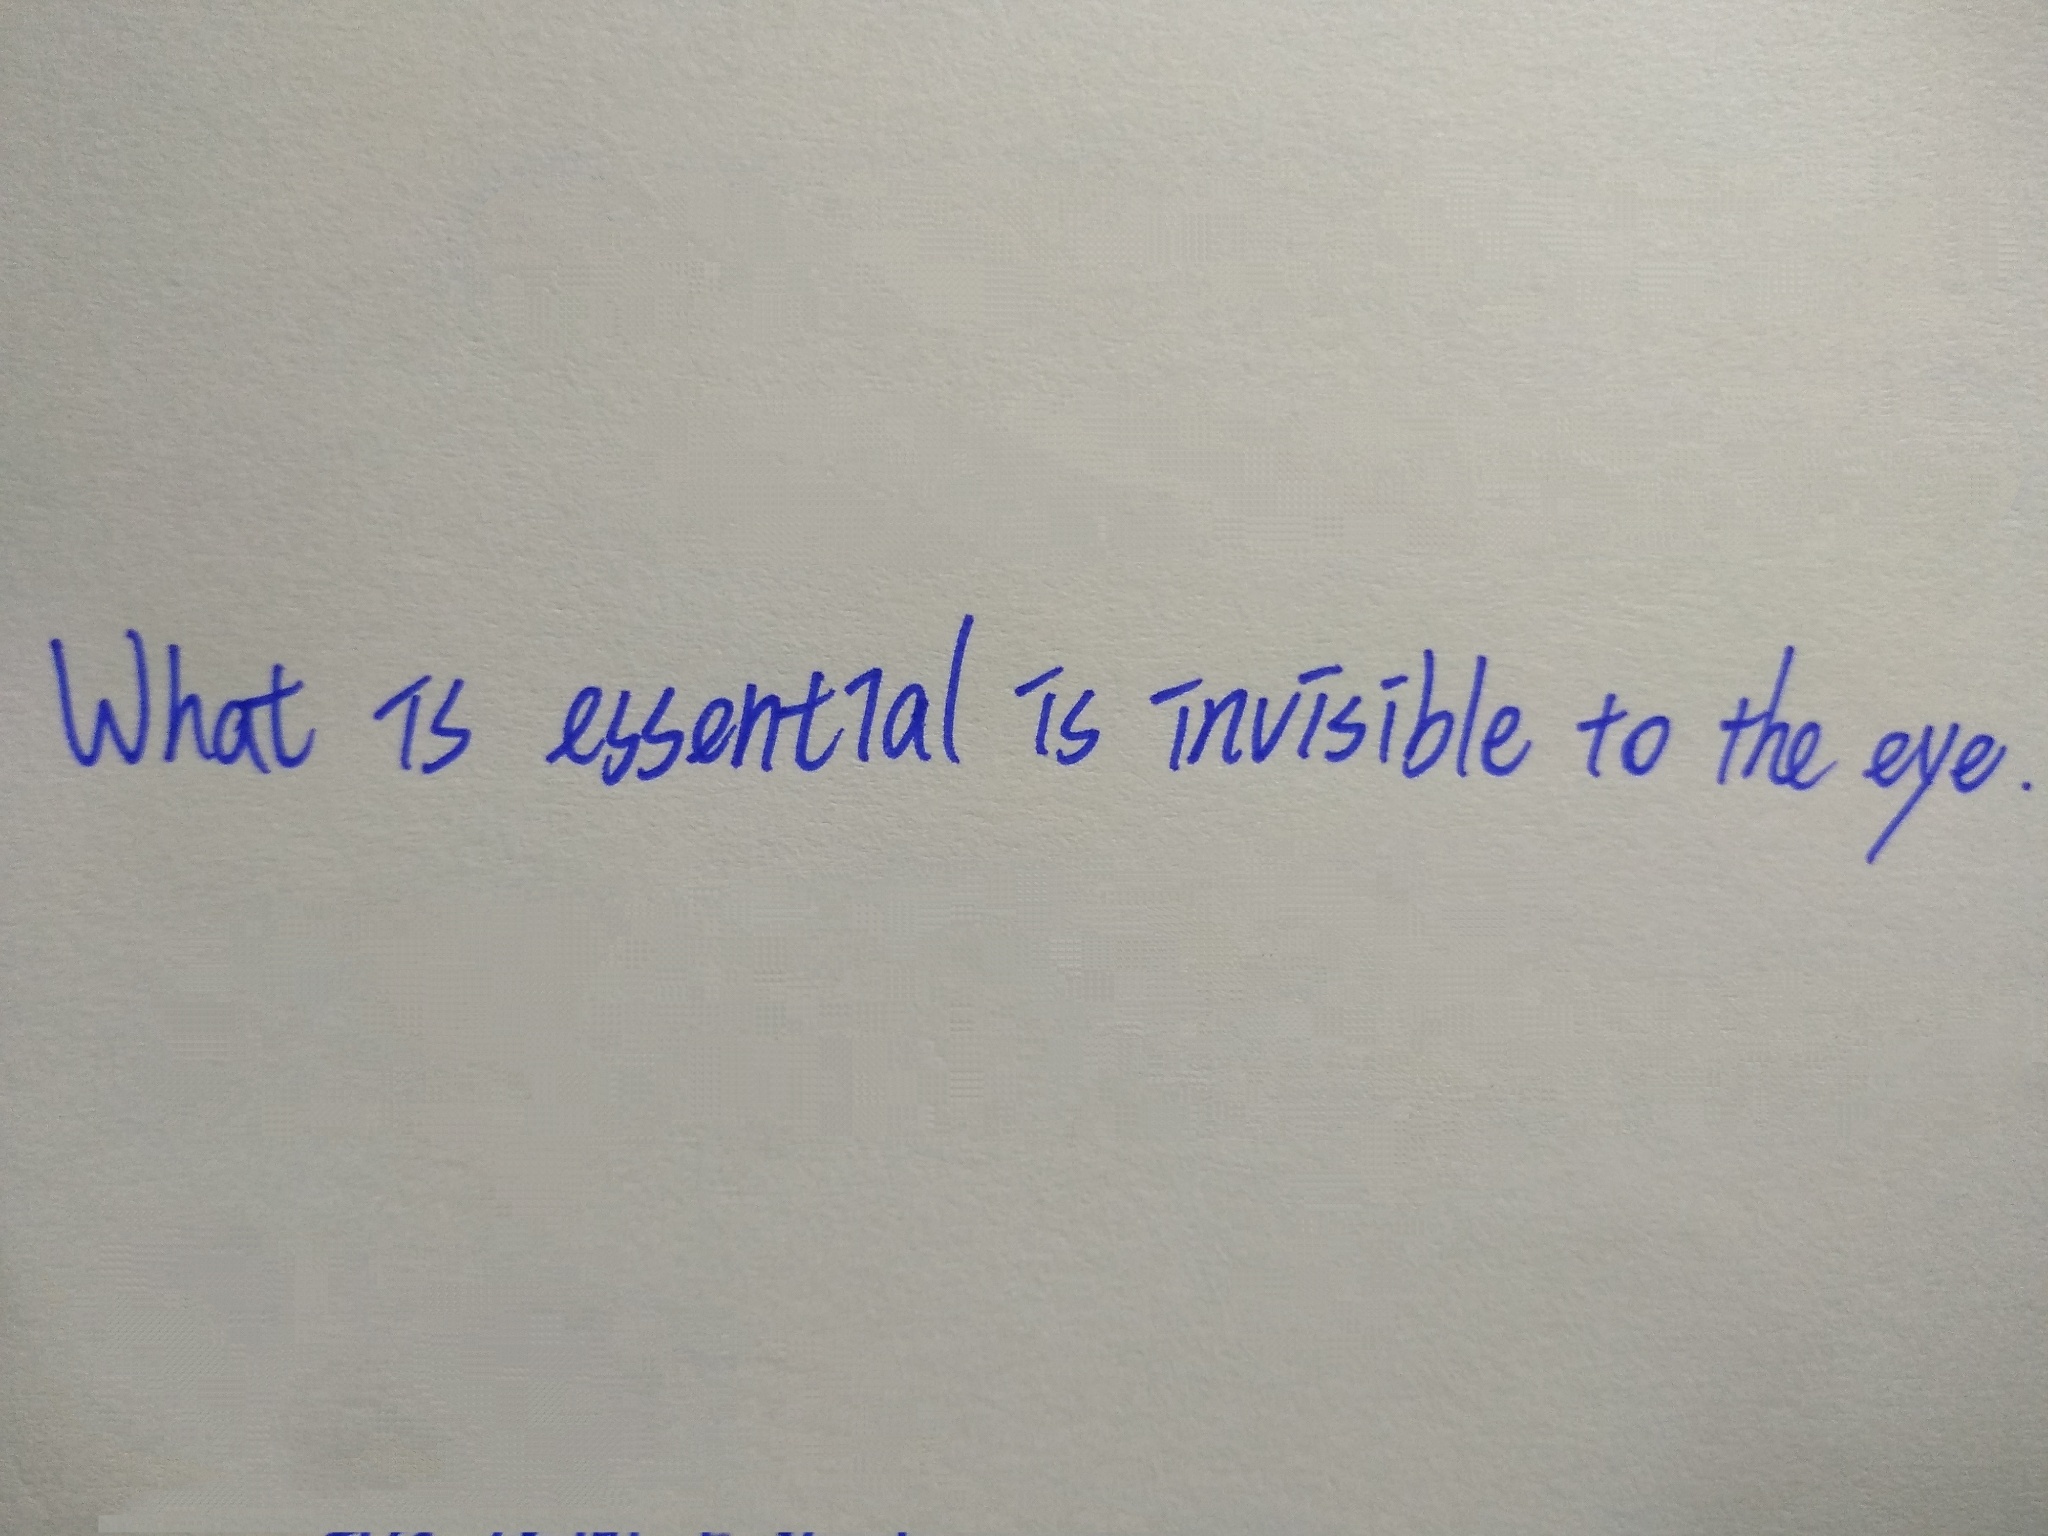 What is essential is invisible to the eye.